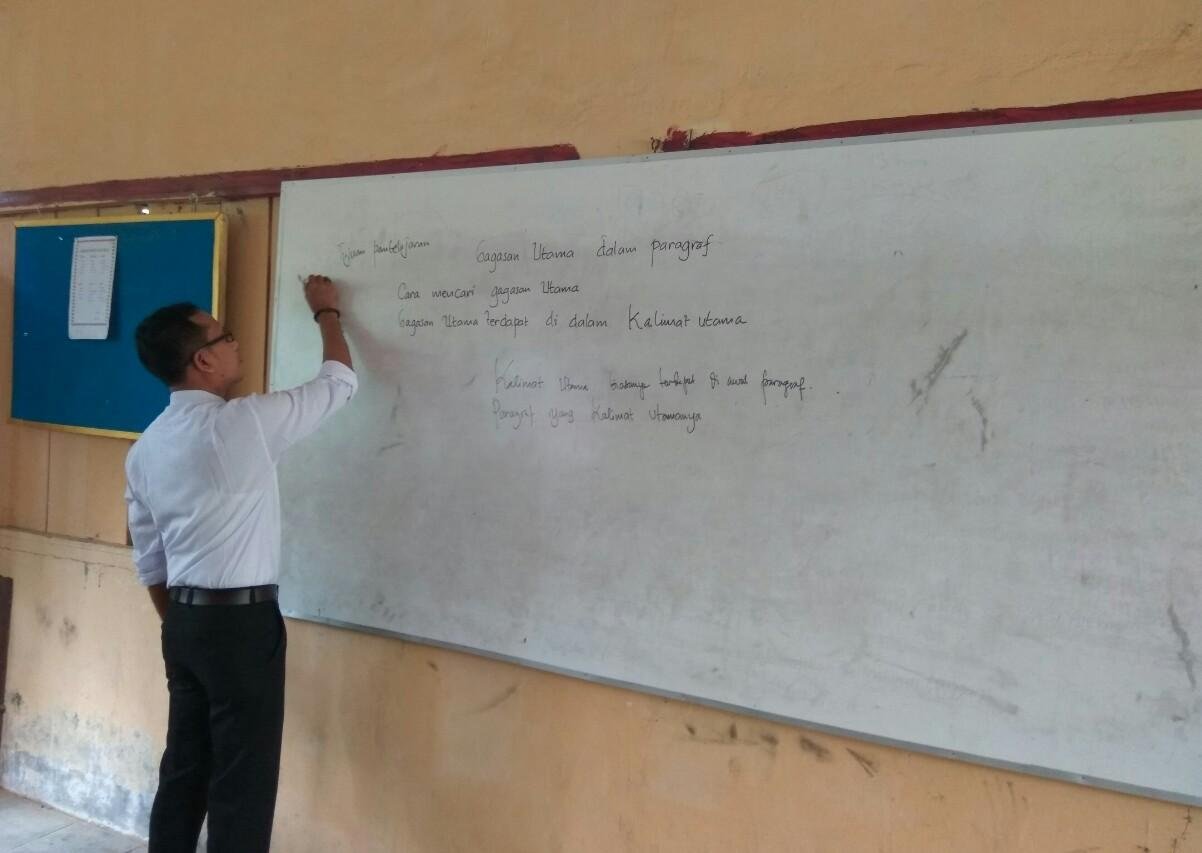 Tujuan pembelajaran Gagasan Utama dalam paragraf
Cara mencari gagasan Utama
Gagasan Utama terdapat di dalam Kalimat utama
Kalimat Utama biasanya terdapat di awal paragraf.
Paragraf yang Kalimat utamanya